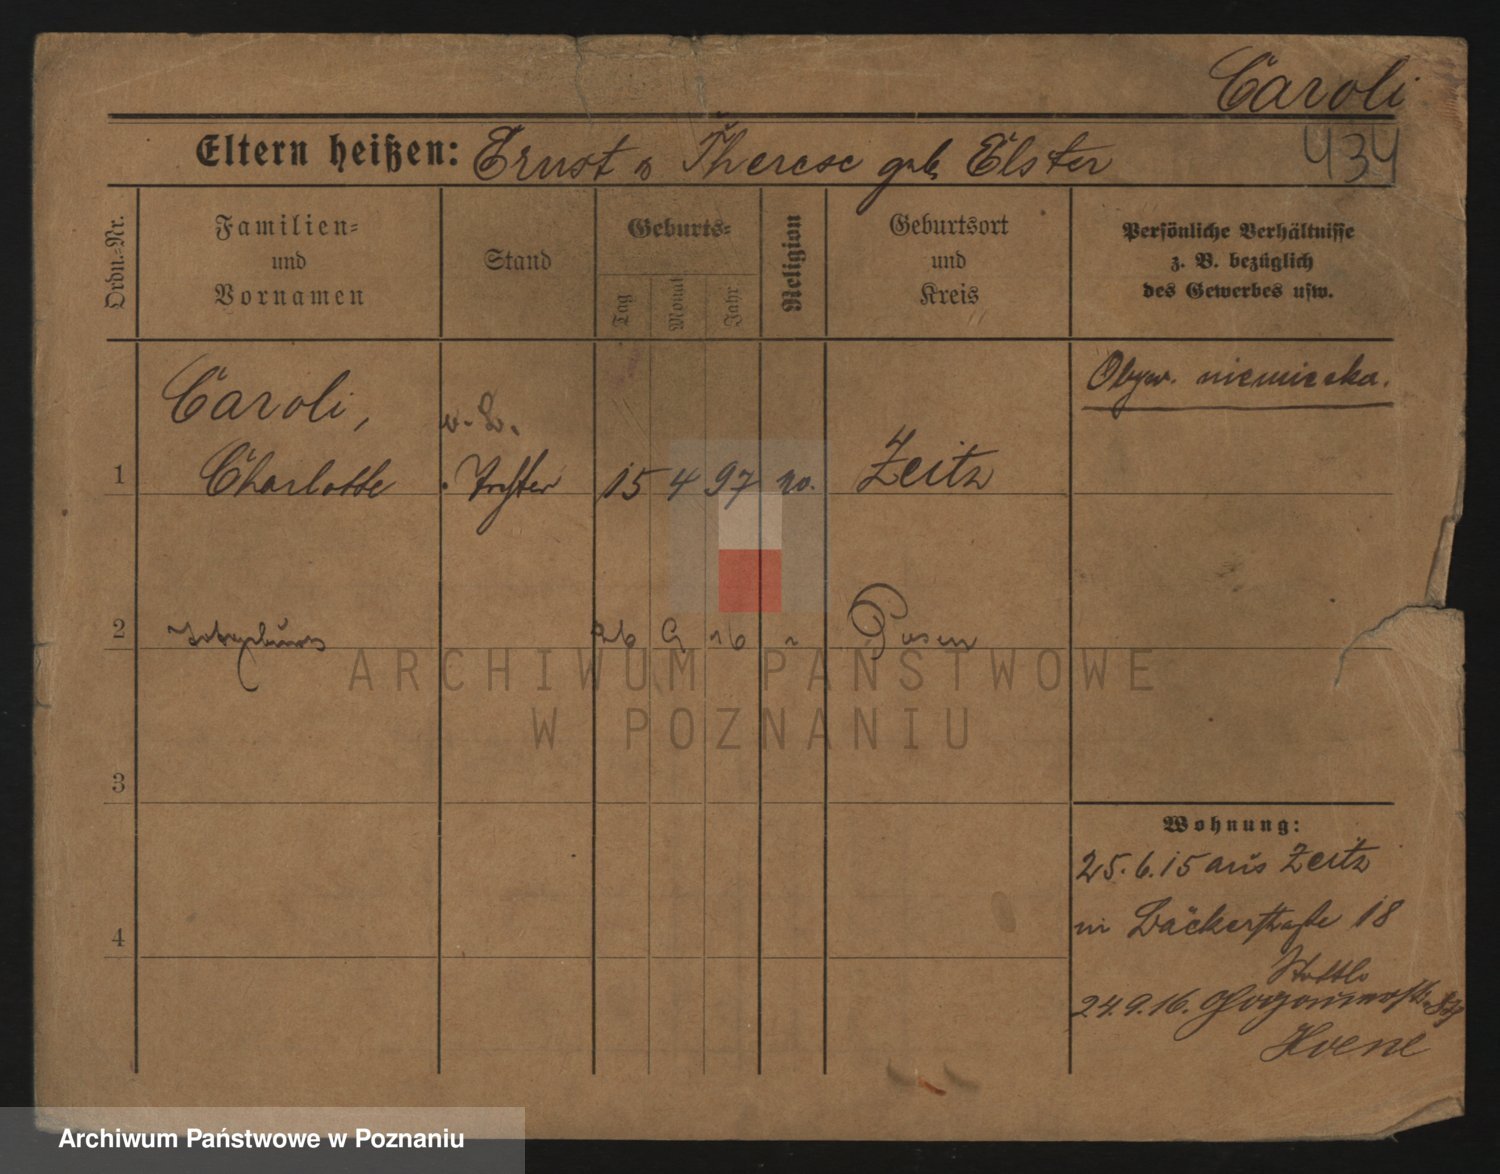 Caroli
434
Eltern heißen: Ernst u Therese geb Elster
Ordn.-Nr.
Familien-
und
Vornamen
Stand
Geburts-
Tag
Monat
Jahr
Religion
Geburtsort
und
Kreis
Persönliche Verhältnisse
z. B. bezüglich
des Gewerbes usw.
Obyw. niemiecka.
Caroli,
1 Charlotte Tochter 15 4 97 Zeitz
2 26 9 16 Posen
ARCHIWUM PAŃSTWOWE
W POZNANIU
3
Wohnung:
25.6.15 aus Zeitz
in Bäckerstraße 18
4
24.9.16.
Hoene
Archiwum Państwowe w Poznaniu